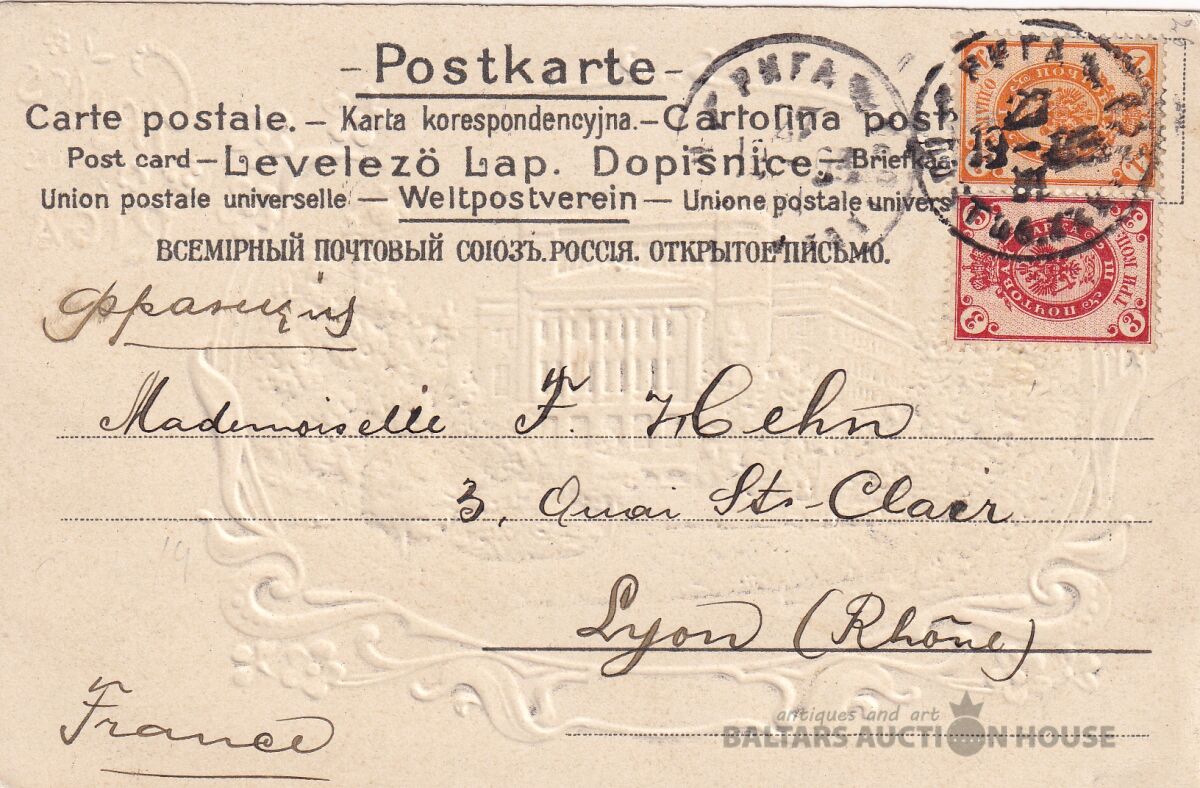 -Postkarte-
Carte postale. – Karta korespondencyjna. – Cartolina post
Post card – Levelezö Lap. Dopisnice. – Briefkaa
Union postale universelle – Weltpostverein – Unione postale univers
ВСЕМІРНЫЙ ПОЧТОВЫЙ СОЮЗЪ. РОССІЯ. ОТКРЫТОЕ ПИСЬМО.
РИГА
РИГА
3 3
франція
Mademoiselle F. Hehn
3, Quai St-Clair
Lyon (Rhône)
France
antiques and art
BALTARS AUCTION HOUSE